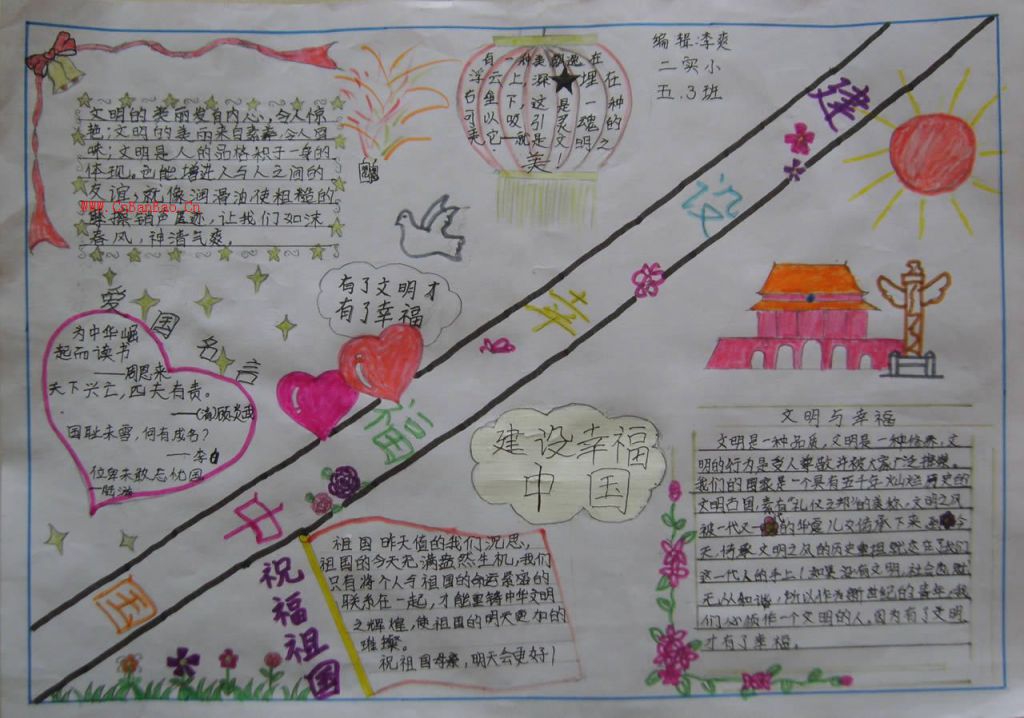 编辑:李爽
二实小
五.3班
文明的美丽发自内心,令人惊
艳;文明的美丽来自素养,令人回
味;文明是人的品格积于一身的
体现。也能增进人与人之间的
友谊,就像润滑油使粗糙的
www.CnBanBao.Cn
让我们如沐
春风,神清气爽。
有一种美飘逸在
浮云上,深埋在
右坐下,这是一种
可以吸引灵魂的
美,它一就是文明之
美!
建设幸福中国
有了文明才
有了幸福
爱国名言
为中华崛
起而读书
——周恩来
天下兴亡,匹夫有责。
——(清)顾炎武
国耻未雪,何有成名?
——李白
位卑未敢忘忧国
—陆游
建设幸福
中国
祝福祖国
祖国昨天值的我们沉思,
祖国的今天充满盎然生机,我们
只有将个人与祖国的命运紧密的
联系在一起,才能重铸中华文明
之辉煌,使祖国的明天更加的
璀璨。
祝祖国母亲,明天会更好!
文明与幸福
文明是一种品质,文明是一种修养,文
明的行为是受人尊敬并被大家广泛推崇。
我们的国家是一个具有五千年灿烂历史的
文明古国,素有“礼仪之邦”的美称,文明之风
被一代又一的华夏儿女传承下来
天,传承文明之风的历史重担就落在了我们
这一代人的手上!如果没有文明,社会
无从和谐,所以作为新世纪的青年,我
们必须作一个文明的人。因为有了文明
才有了幸福。